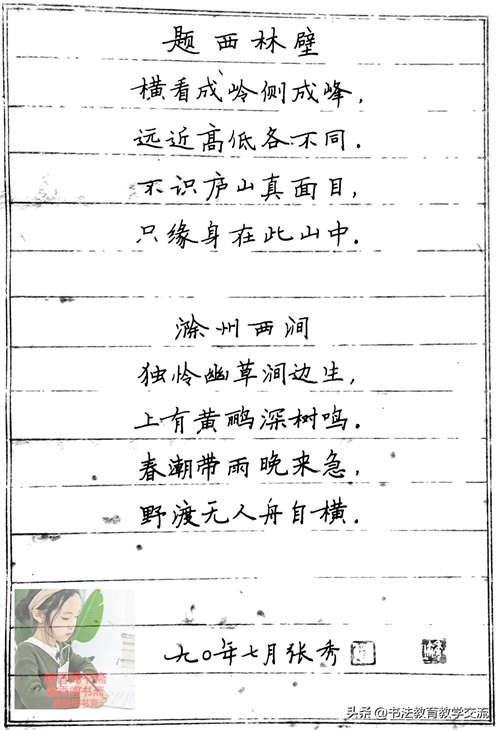 题西林壁
横看成岭侧成峰，
远近高低各不同．
不识庐山真面目，
只缘身在此山中．
滁州西涧
独怜幽草涧边生，
上有黄鹂深树鸣．
春潮带雨晚来急，
野渡无人舟自横．
九〇年七月张秀
头条@书法教育教学交流